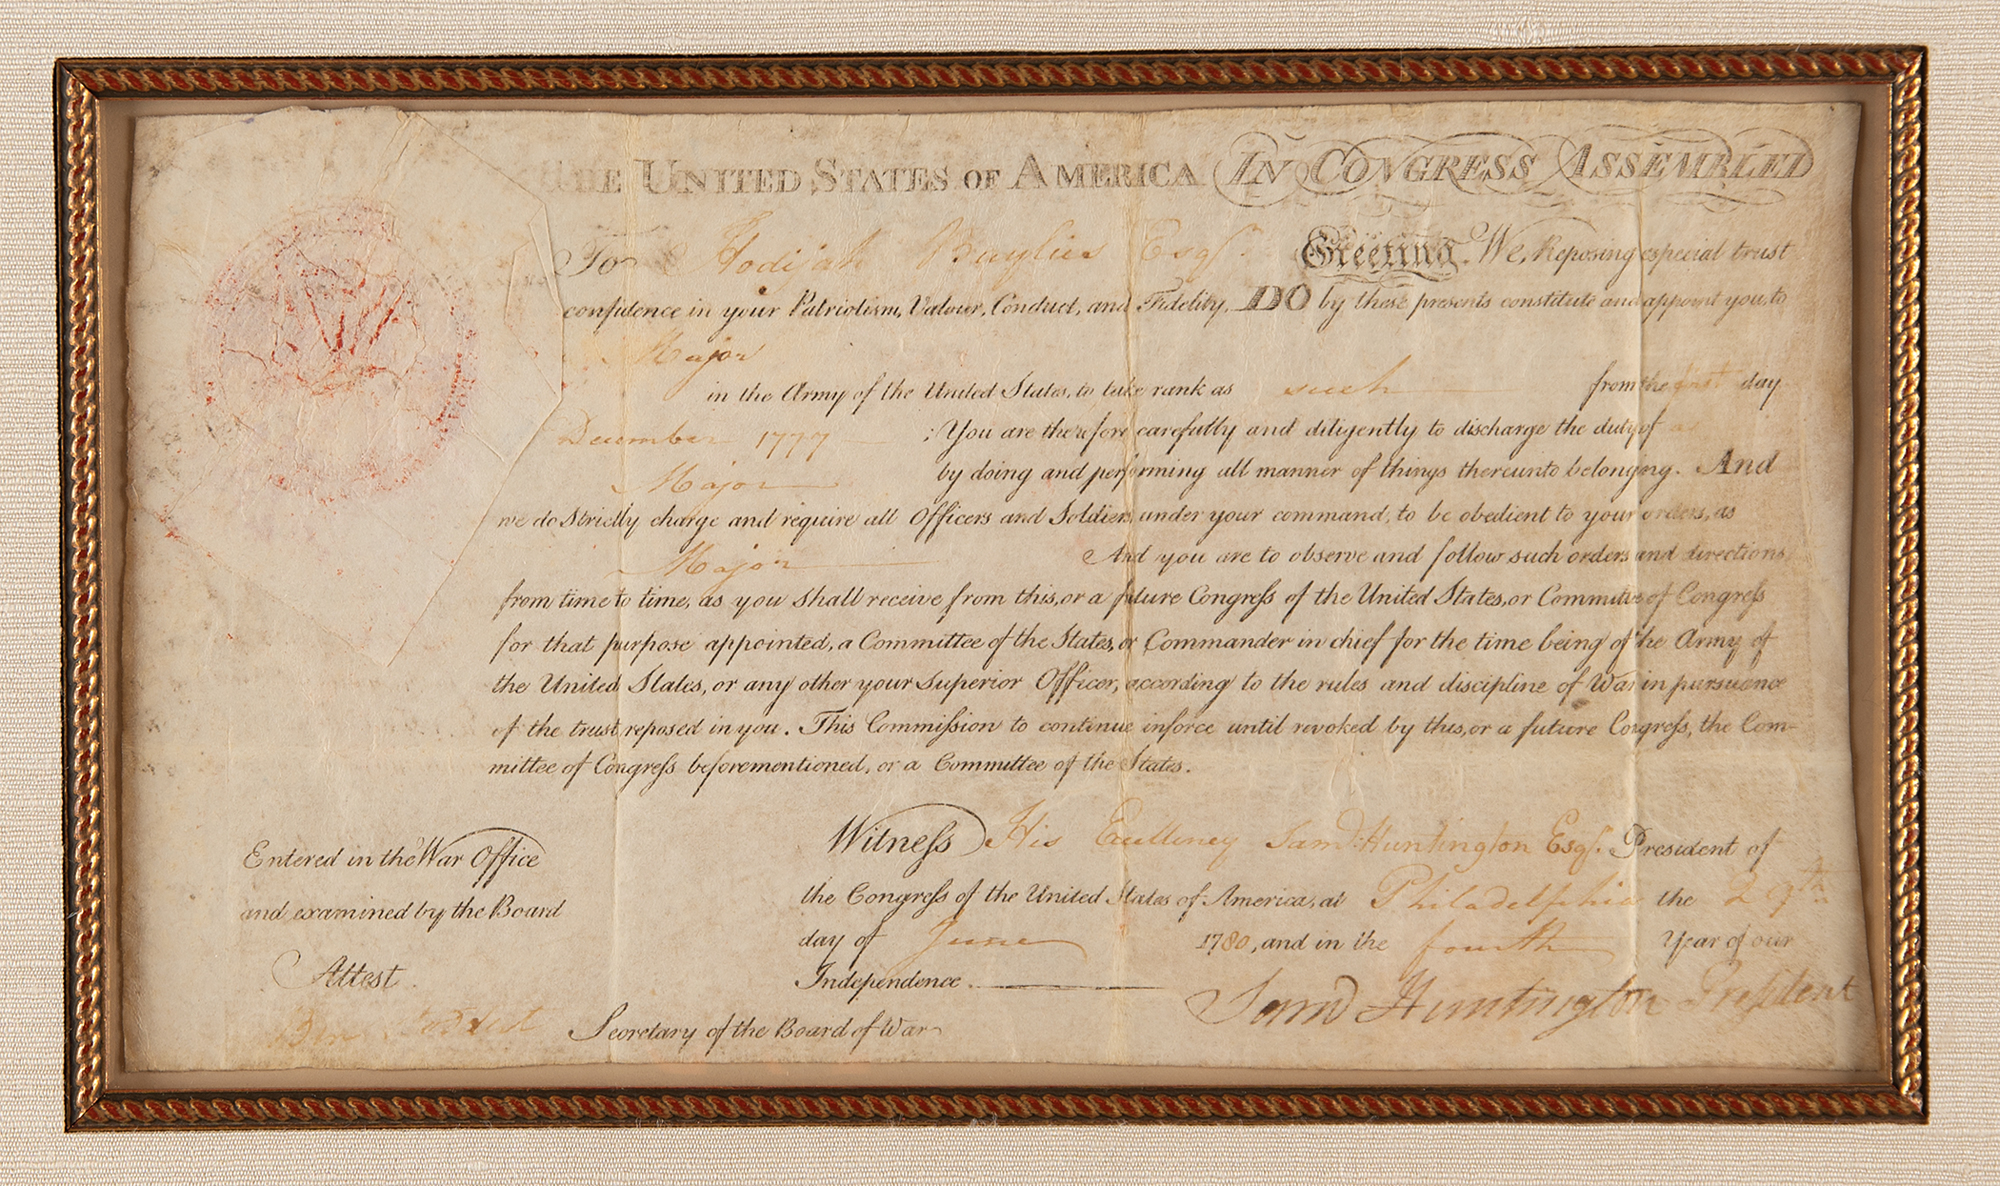 THE UNITED STATES OF AMERICA IN CONGRESS ASSEMBLED
To Hodijah Baylies Esqr. Greeting. We, Reposing especial trust
confidence in your Patriotism, Valour, Conduct, and Fidelity, DO by these presents constitute and appoint you, to
Major
in the Army of the United States, to take rank as such from the first day
December 1777 ; You are therefore carefully and diligently to discharge the duty of as
Major by doing and performing all manner of things thereunto belonging. And
we do Strictly charge and require all Officers and Soldiers under your command, to be obedient to your orders, as
Major And you are to observe and follow such orders and directions
from time to time, as you shall receive from this, or a future Congress of the United States, or Committee of Congress
for that purpose appointed, a Committee of the States, or Commander in chief for the time being of the Army of
the United States, or any other your Superior Officer, according to the rules and discipline of War in pursuence
of the trust reposed in you. This Commission to continue inforce until revoked by this, or a future Congress, the Com-
mittee of Congress beforementioned, or a Committee of the States.
Witness His Excellency Saml. Huntington Esqr. President of
the Congress of the United States of America, at Philadelphia the 29th
day of June 1780, and in the fourth Year of our
Independence.
Saml Huntington President
Entered in the War Office
and examined by the Board
Attest.
Ben Secretary of the Board of War